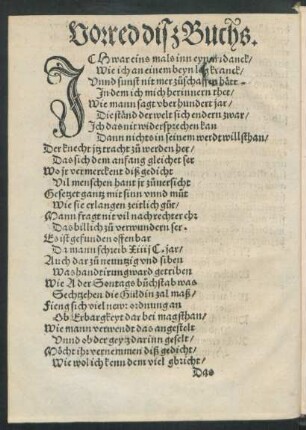 Vorred diß Buchs.
ICH war eins mals inn eym gdanck/
Wie ich an einem beyn lag kranck/
Vnnd sunst nit mer zuͦ schaffen hatt
In dem ich mich herinnern thet
Wie mann sagt vber hundert jar/
Die stånd der welt sich endern zwar/
Ich das nit widersprechen kan
Dann nichts in seinem werdt will sthan/
Der knecht jtz tracht zuͦ werden her/
Das sich dem anfang gleichet ser
Wo jr vermerckent diß gedicht
Vil menschen hant jr zuͦuersicht
Gesetzet gantz mit sinn vnnd muͦt
Wie sie erlangen zeitlich guͦt/
Mann fragt nit vil nach rechter ehr
Das billich zuͦ verwundern ser.
Es ist gefunden offenbar
Da mann schreib Xiiij C. jar/
Auch dar zuͦ neuntzig vnd siben
Was handtirung ward getriben
Wie A der Sontags buͦchstab was
Sechtzehen die Guldin zal maß/
Fieng sich viel newer ordnung an
Ob Erbargkeyt dar bei mag sthan/
Wie mann verwendt das angestelt
Vnnd ob der geytz darinn gefelt/
Moͤcht ihr vernemmen diß gedicht/
Wie wol ich kenn dem viel gbricht/
Das